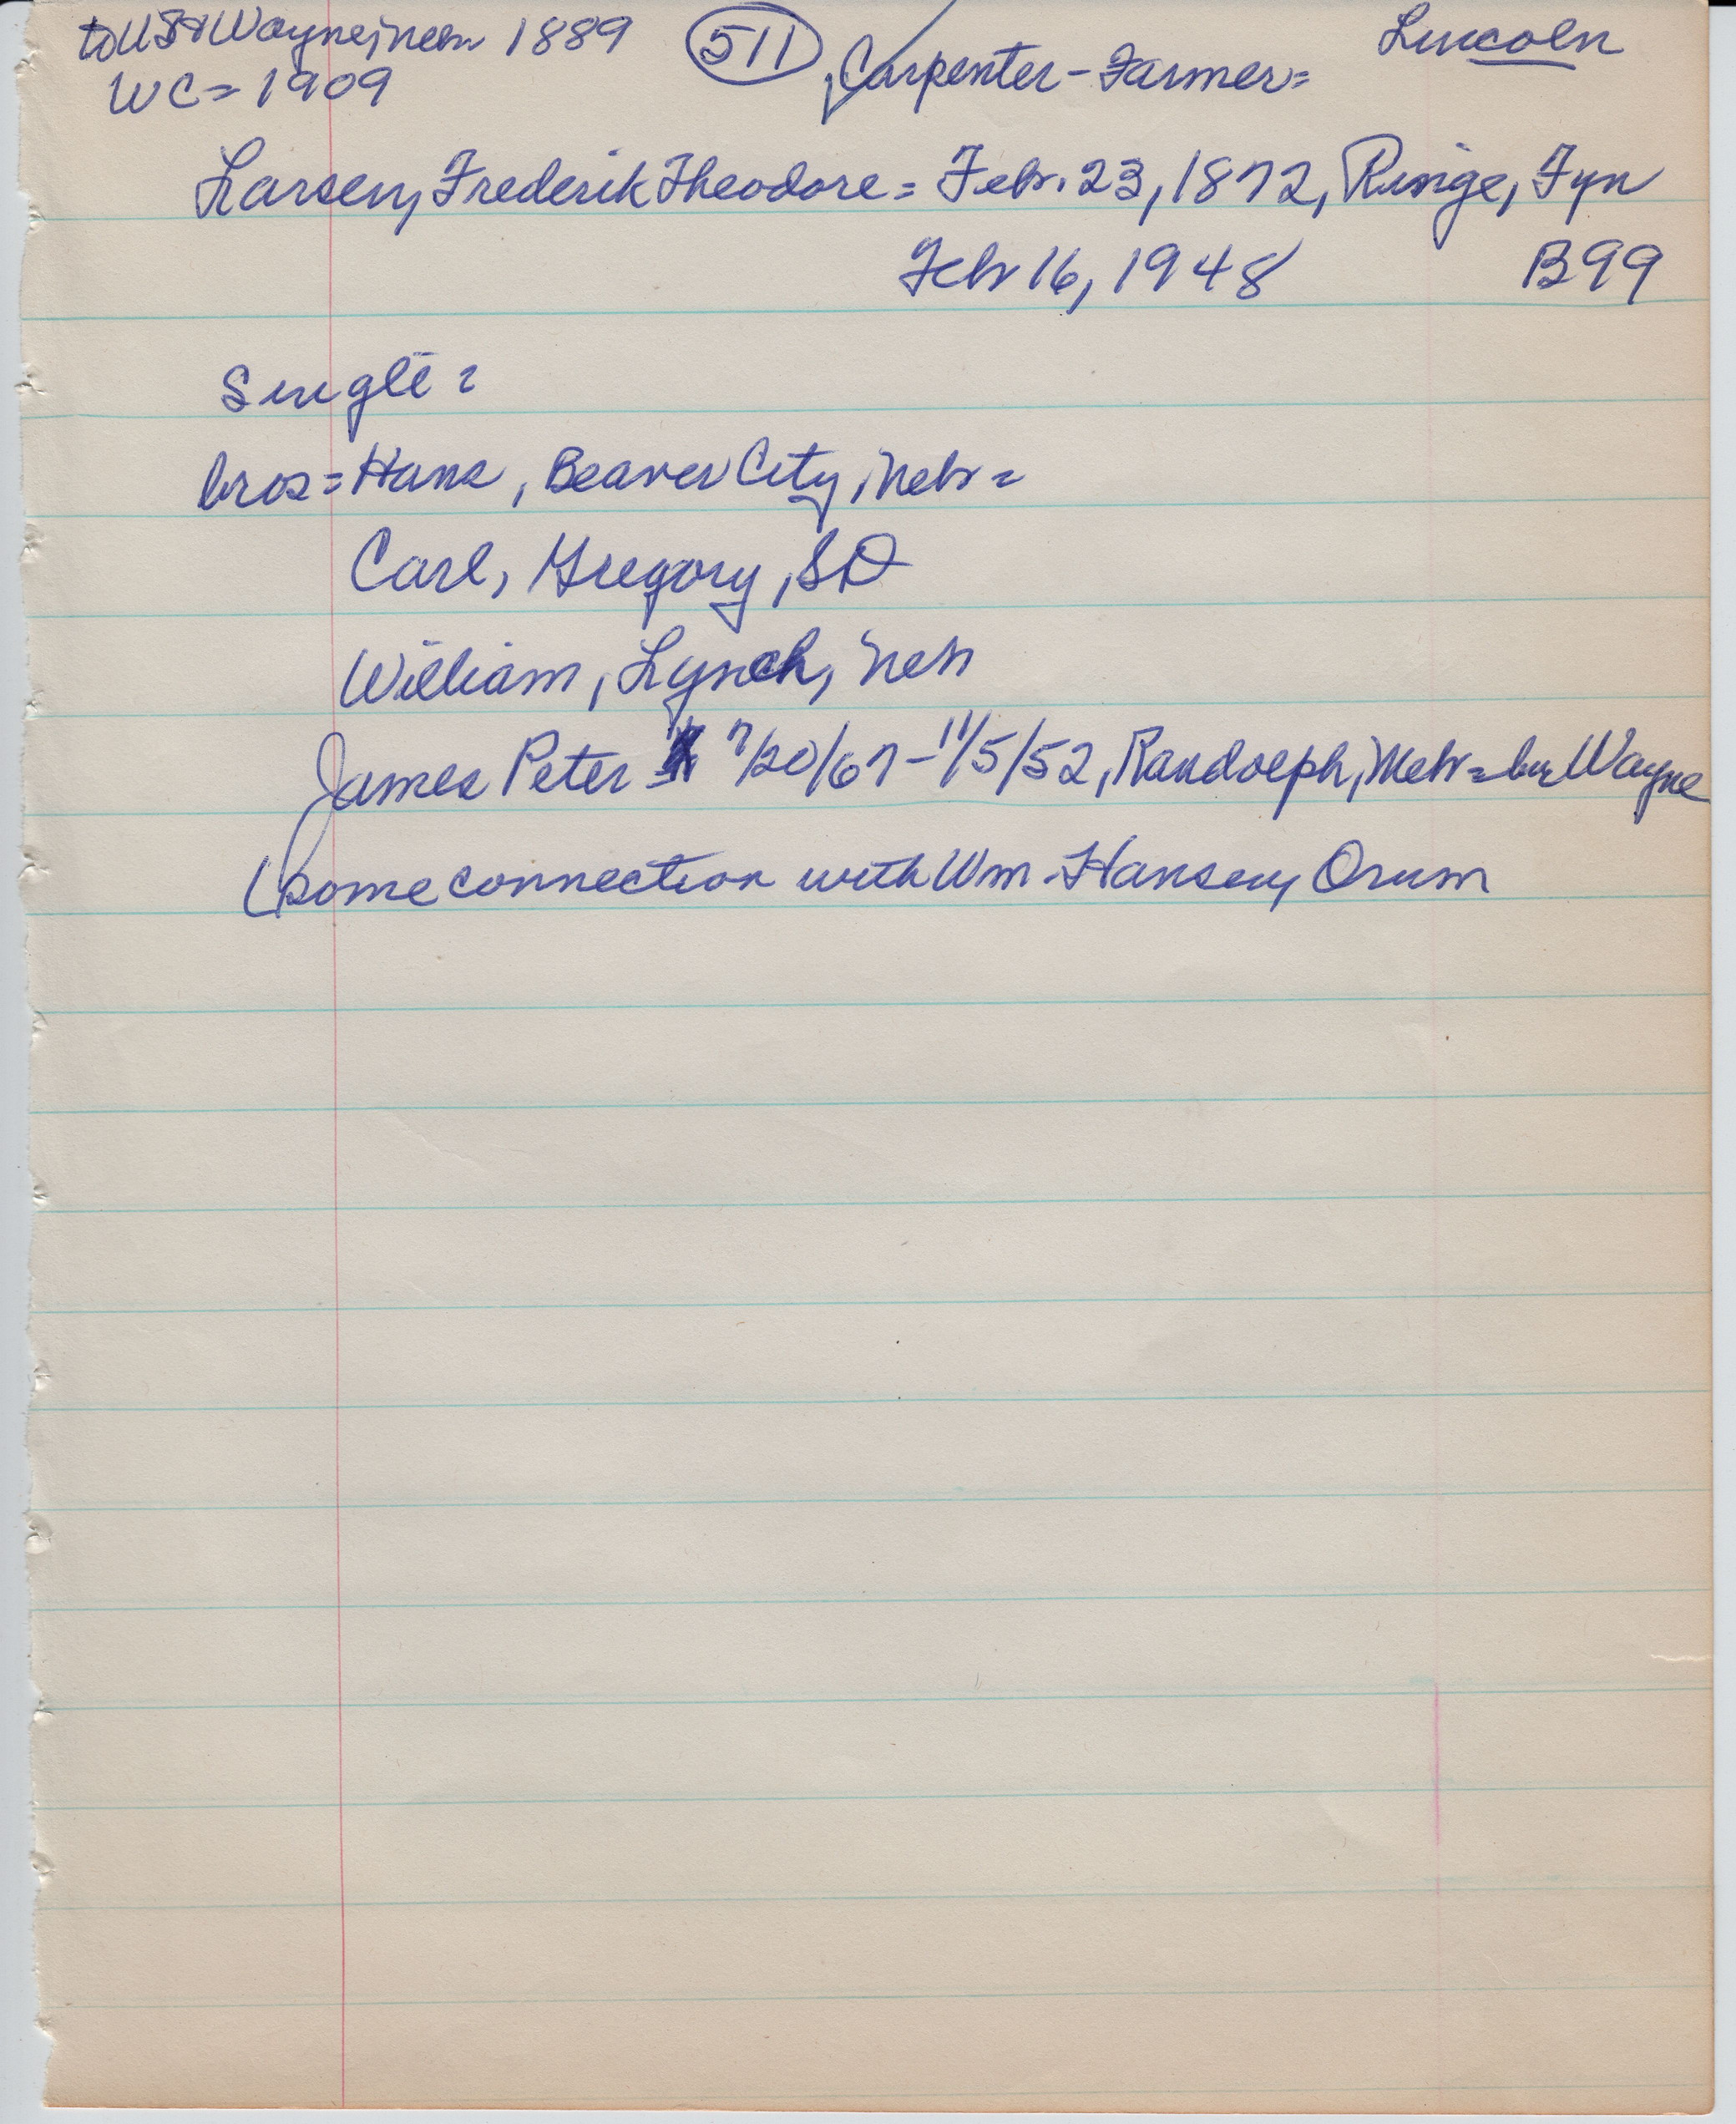 to US & Wayne, Neb 1889 (511) Carpenter - Farmer = Lincoln
WC = 1909
Larsen, Frederik Theodore = Feb. 23, 1872, Ringe, Fyn
Feb 16, 1948 B99
Single =
bros = Hans, Beaver City, Nebr =
Carl, Gregory, SD
William, Lynch, Neb
James Peter 7/20/67 - 11/5/52, Randolph, Nebr = bu Wayne
(some connection with Wm. Hansen, Orum